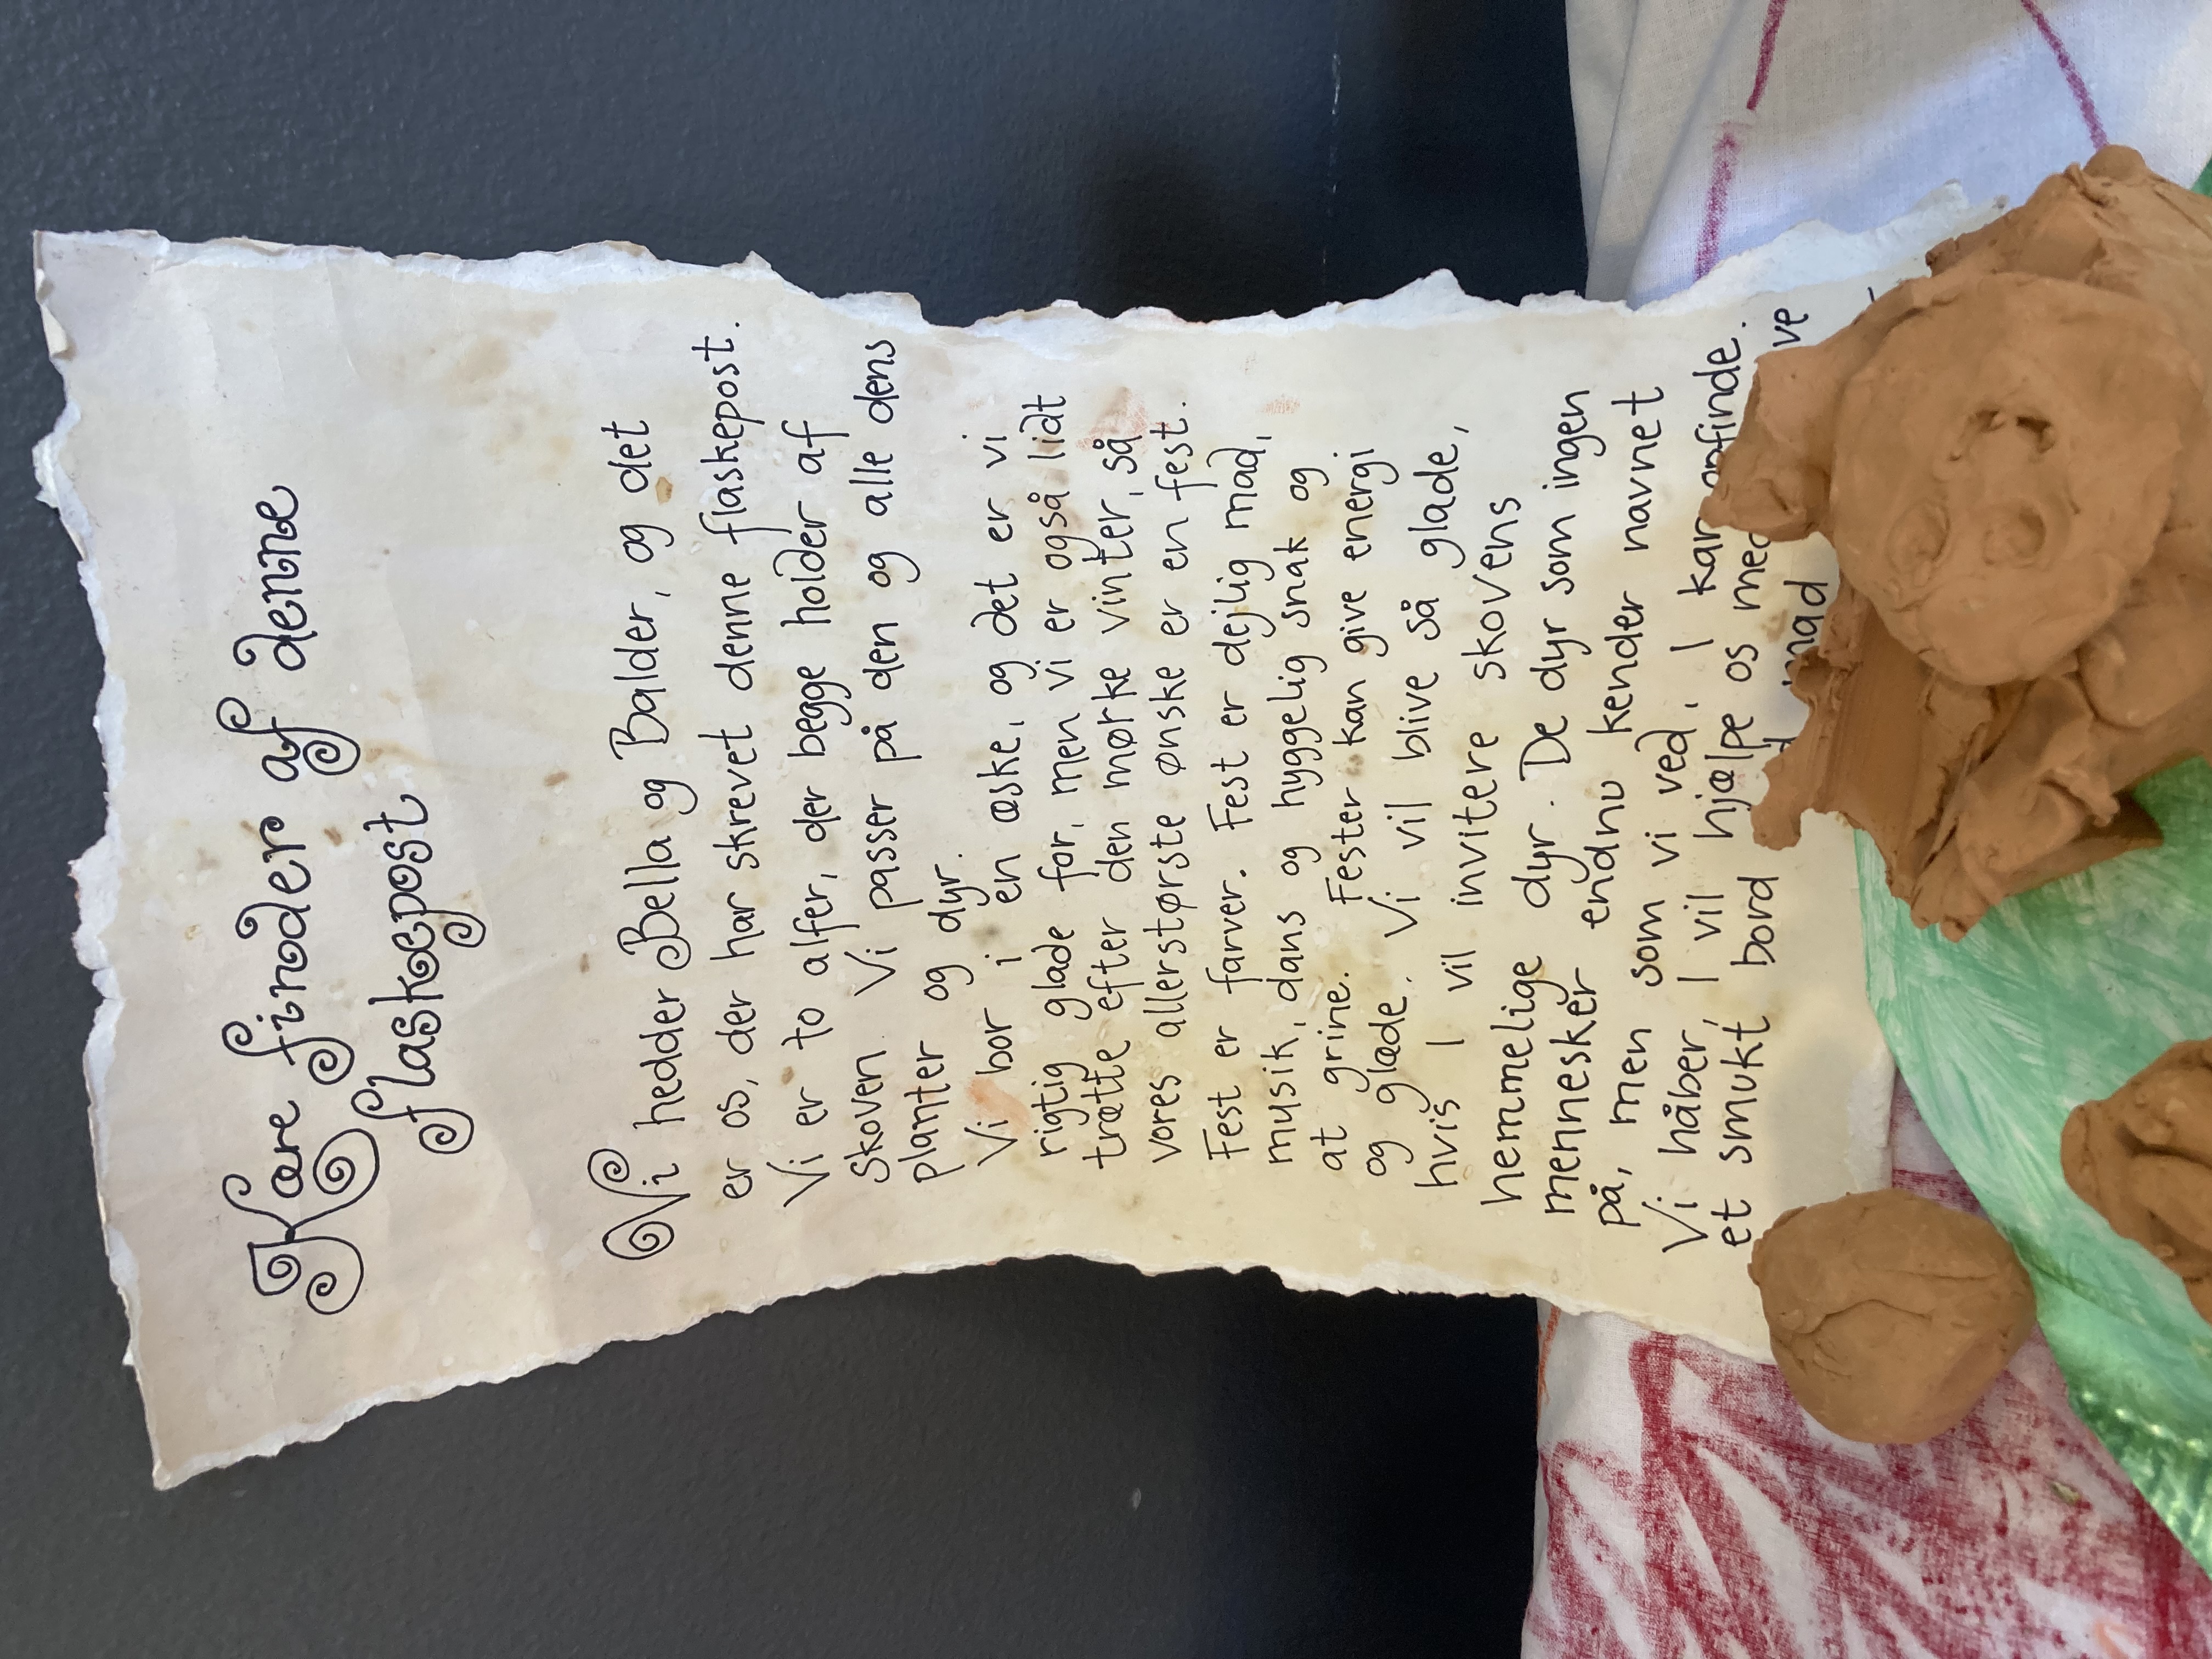 Kære finder af denne
flaskepost
Vi hedder Bella og Balder, og det
er os, der har skrevet denne flaskepost.
Vi er to alfer, der begge holder af
skoven. Vi passer på den og alle dens
planter og dyr.
Vi bor i en æske, og det er vi
rigtig glade for, men vi er også lidt
trætte efter den mørke vinter, så
vores allerstørste ønske er en fest.
Fest er farver. Fest er dejlig mad,
musik, dans og hyggelig snak og
at grine. Fester kan give energi
og glæde. Vi vil blive så glade,
hvis I vil invitere skovens
hemmelige dyr. De dyr som ingen
mennesker endnu kender navnet
på, men som vi ved, I kan opfinde.
Vi håber, I vil hjælpe os med
et smukt bord mad